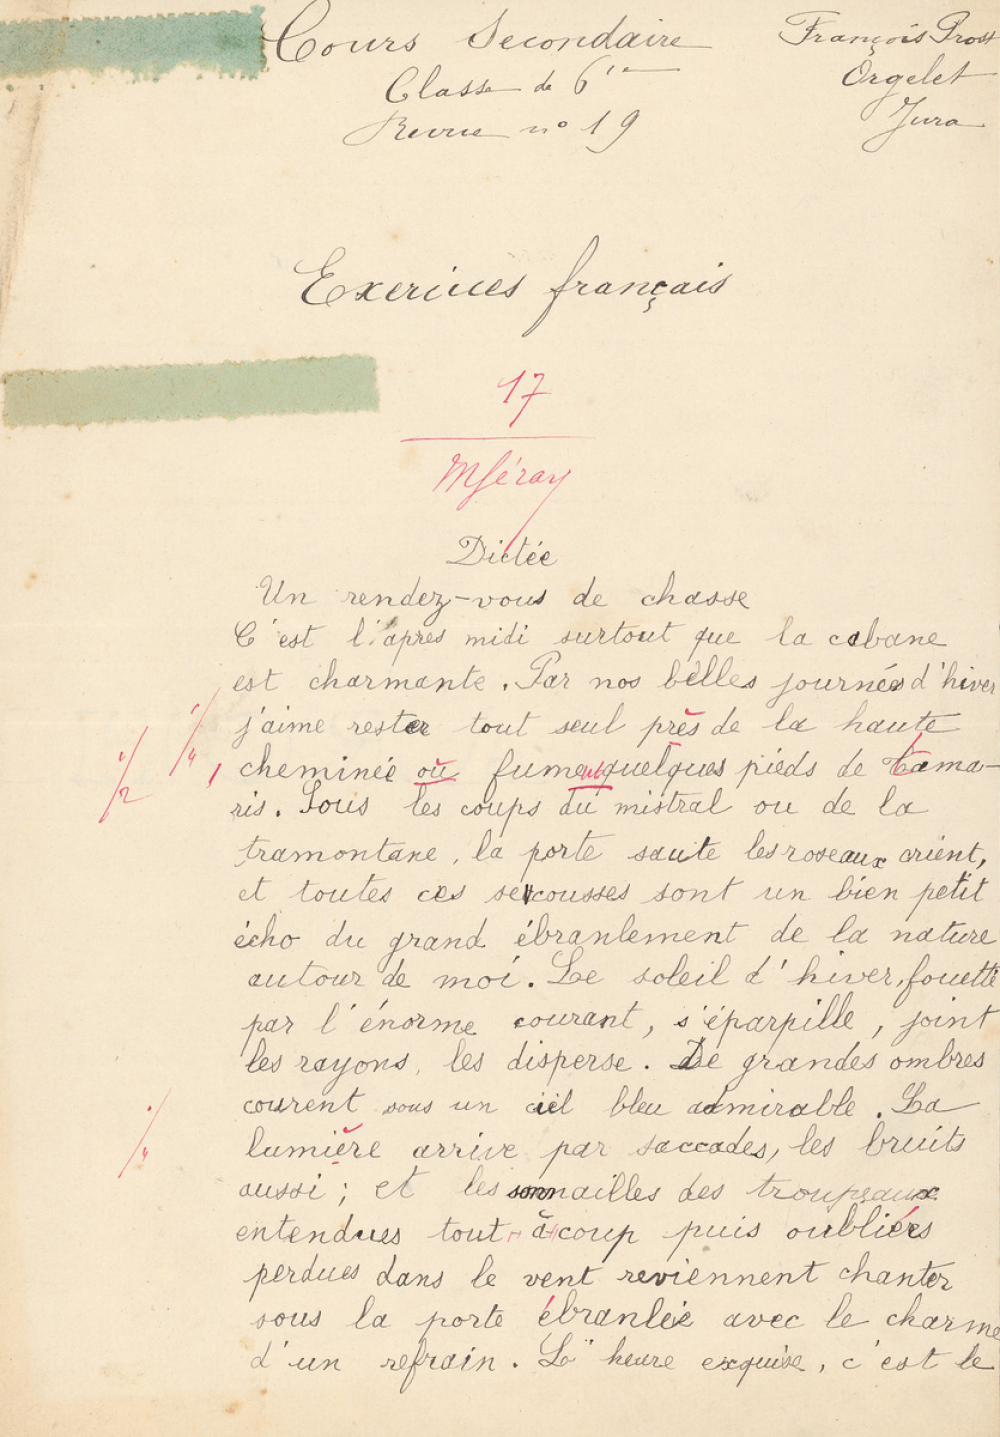 Cours Secondaire
François Prost
Classe de 6ième
Orgelet
Revue n° 19
Jura
Exercices français
17
MSéray
Dictée
Un rendez-vous de chasse
C'est l'apres midi surtout que la cabane
est charmante. Par nos belles journées d'hiver
j'aime rester tout seul près de la haute
1/4
cheminée où fument quelques pieds de tama-
1/2
ris. Sous les coups du mistral ou de la
tramontane, la porte saute les roseaux crient,
et toutes ces secousses sont un bien petit
écho du grand ébranlement de la nature
autour de moi. Le soleil d'hiver, fouetté
par l'énorme courant, s'éparpille, joint
les rayons, les disperse. De grandes ombres
courent sous un ciel bleu admirable. La
1/4
lumière arrive par saccades, les bruits
aussi; et les sonnailles des troupeaux
entendues tout-à-coup puis oubliées
perdues dans le vent reviennent chanter
sous la porte ébranlée avec le charme
d'un refrain. L'heure exquise, c'est le